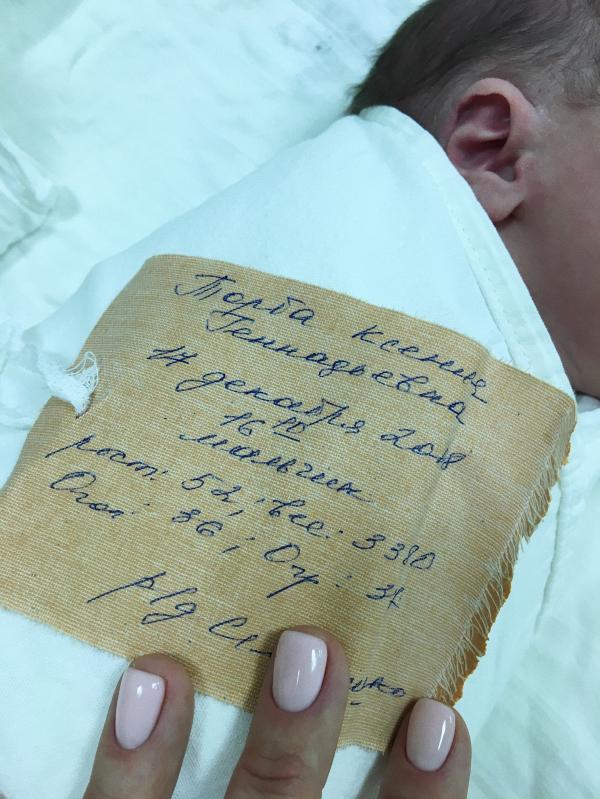 Торба Ксения
Геннадьевна
14 декабря 2018
16 10
мальчик
рост: 52, ; вес: 3390
Огол: 36 ; Огр : 34